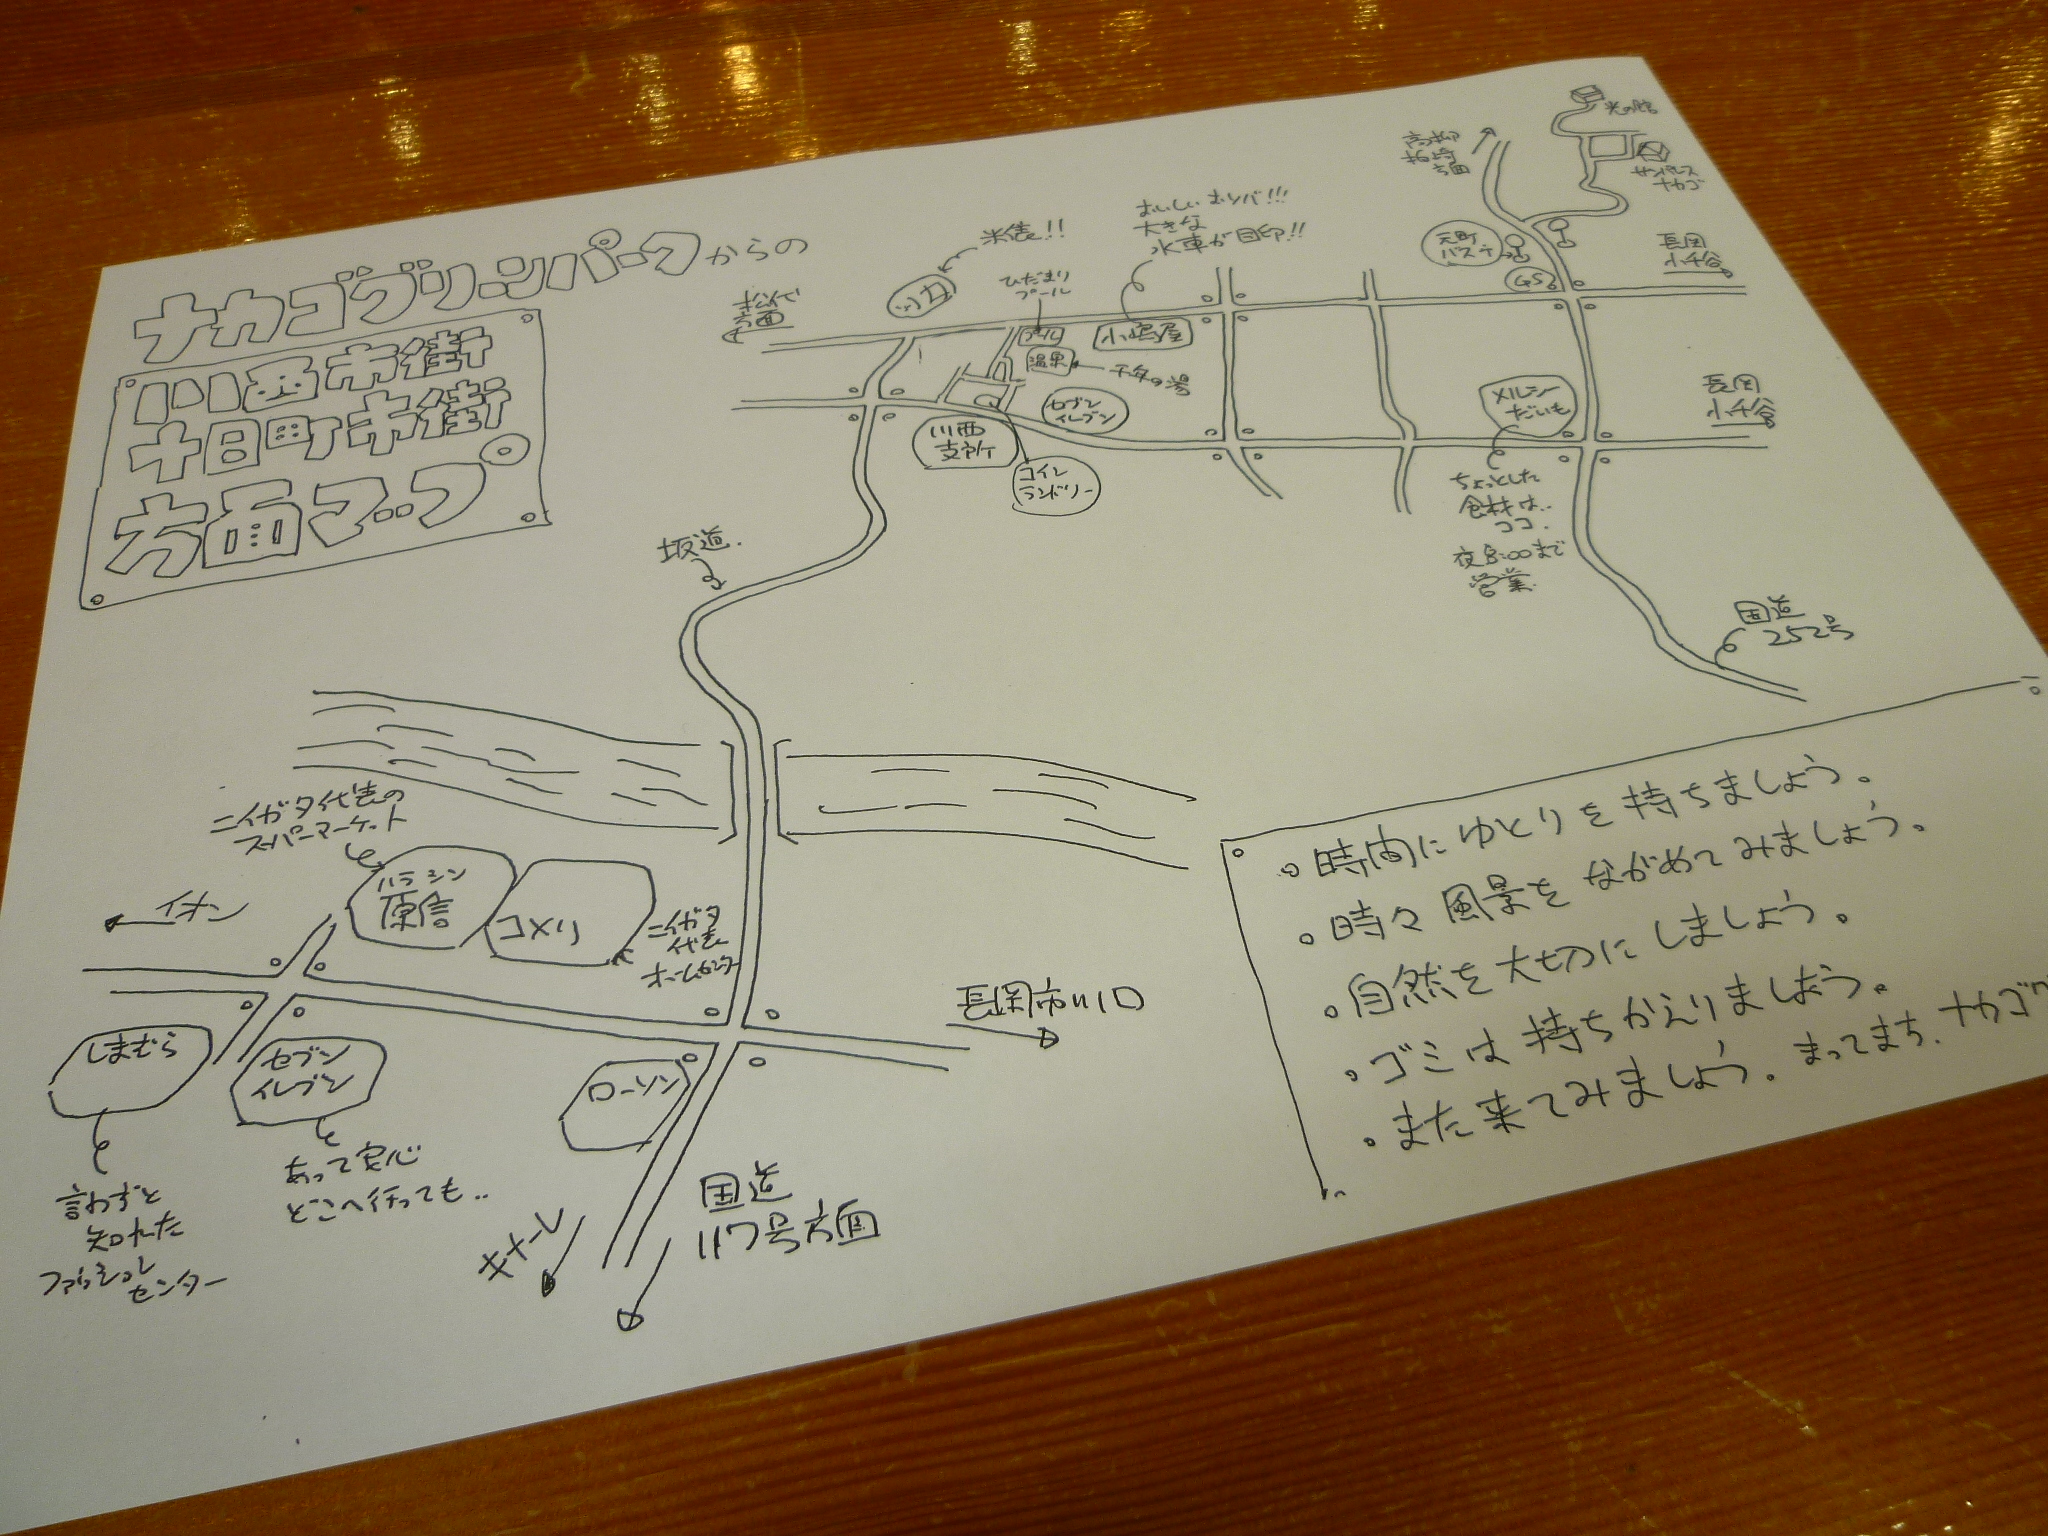 ナカゴグリーンパークからの
川西市街
十日町市街
方面マップ
松代
方面
米俵!!
ひだまり
プール
プール
温泉
千年の湯
おいしいおソバ!!!
大きな
水車が目印!!
小嶋屋
高柳
柏崎
方面
光の館
サンパレス
ナカゴ
元町
バステイ
GS
長岡
小千谷
長岡
小千谷
セブン
イレブン
川西
支所
コイン
ランドリー
メルシー
だいも
ちょっとした
食材は..
ココ.
夜8:00まで
営業.
国道
252号
坂道.
ニイガタ代表の
スーパーマーケット
ハラシン
原信
コメリ
ニイガタ
代表
ホームセンター
イオン
しまむら
セブン
イレブン
ローソン
長岡市川口
言わずと
知れた
ファッション
センター
あって安心
どこへ行っても..
キナーレ
国道
117号方面
。時間にゆとりを持ちましょう。
。時々風景をながめてみましょう。
。自然を大切にしましょう。
。ゴミは持ちかえりましょう。
。また来てみましょう。まってまち.ナカゴ